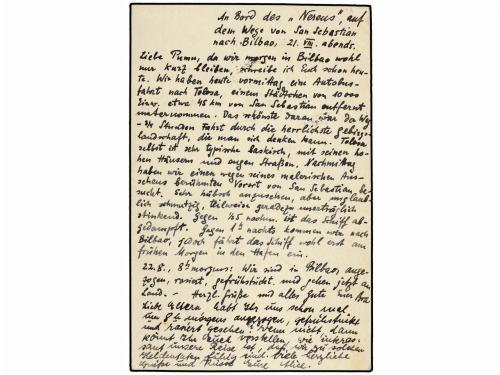 An Bord des „Nereus", auf
dem Wege von San Sebastian
nach Bilbao, 21. VIII. abends.
Liebe Pumm, da wir morgen in Bilbao wohl
nur kurz bleiben, schreibe ich Euch schon heu-
te. Wir haben heute vormittag eine Autobus-
fahrt nach Tolosa, einem Städtchen von 10 000
Einw. etwa 45 km von San Sebastian entfernt
unternommen. Das schönste daran war der Weg
Stunden Fahrt durch die herrlichste Gebirgs-
landschaft, die man sich denken kann. Tolosa
selbst ist sehr typisch baskisch, mit seinen ho-
hen Häusern und engen Straßen. Nachmittag
haben wir einen wegen seines malerischen Aus-
sehens berühmten Vorort von San Sebastian be-
sucht. Sehr hübsch anzusehen, aber unglaub-
lich schmutzig, teilweise geradezu unerträglich
stinkend. Gegen ½5 nachm. ist das Schiff ab-
gedampft. Gegen 1h nachts kommen wir nach
Bilbao, jedoch fährt das Schiff wohl erst am
frühen Morgen in den Hafen ein.
22.8., 8h morgens: Wir sind in Bilbao, ange-
zogen, rasiert, gefrühstückt und gehen jetzt an
Land. - Herzl. Grüße und alles Gute
Liebe Eltern habt Ihr uns schon mal
um 8h morgens angezogen, gefrühstückt
und rasiert gesehen? Wenn nicht, dann
könnt Ihr Euch vorstellen, wie interes-
sant unsere Reise ist, daß wir zu solchen
Heldentaten fähig sind. Viele herzliche
Grüße und Küsse Eure